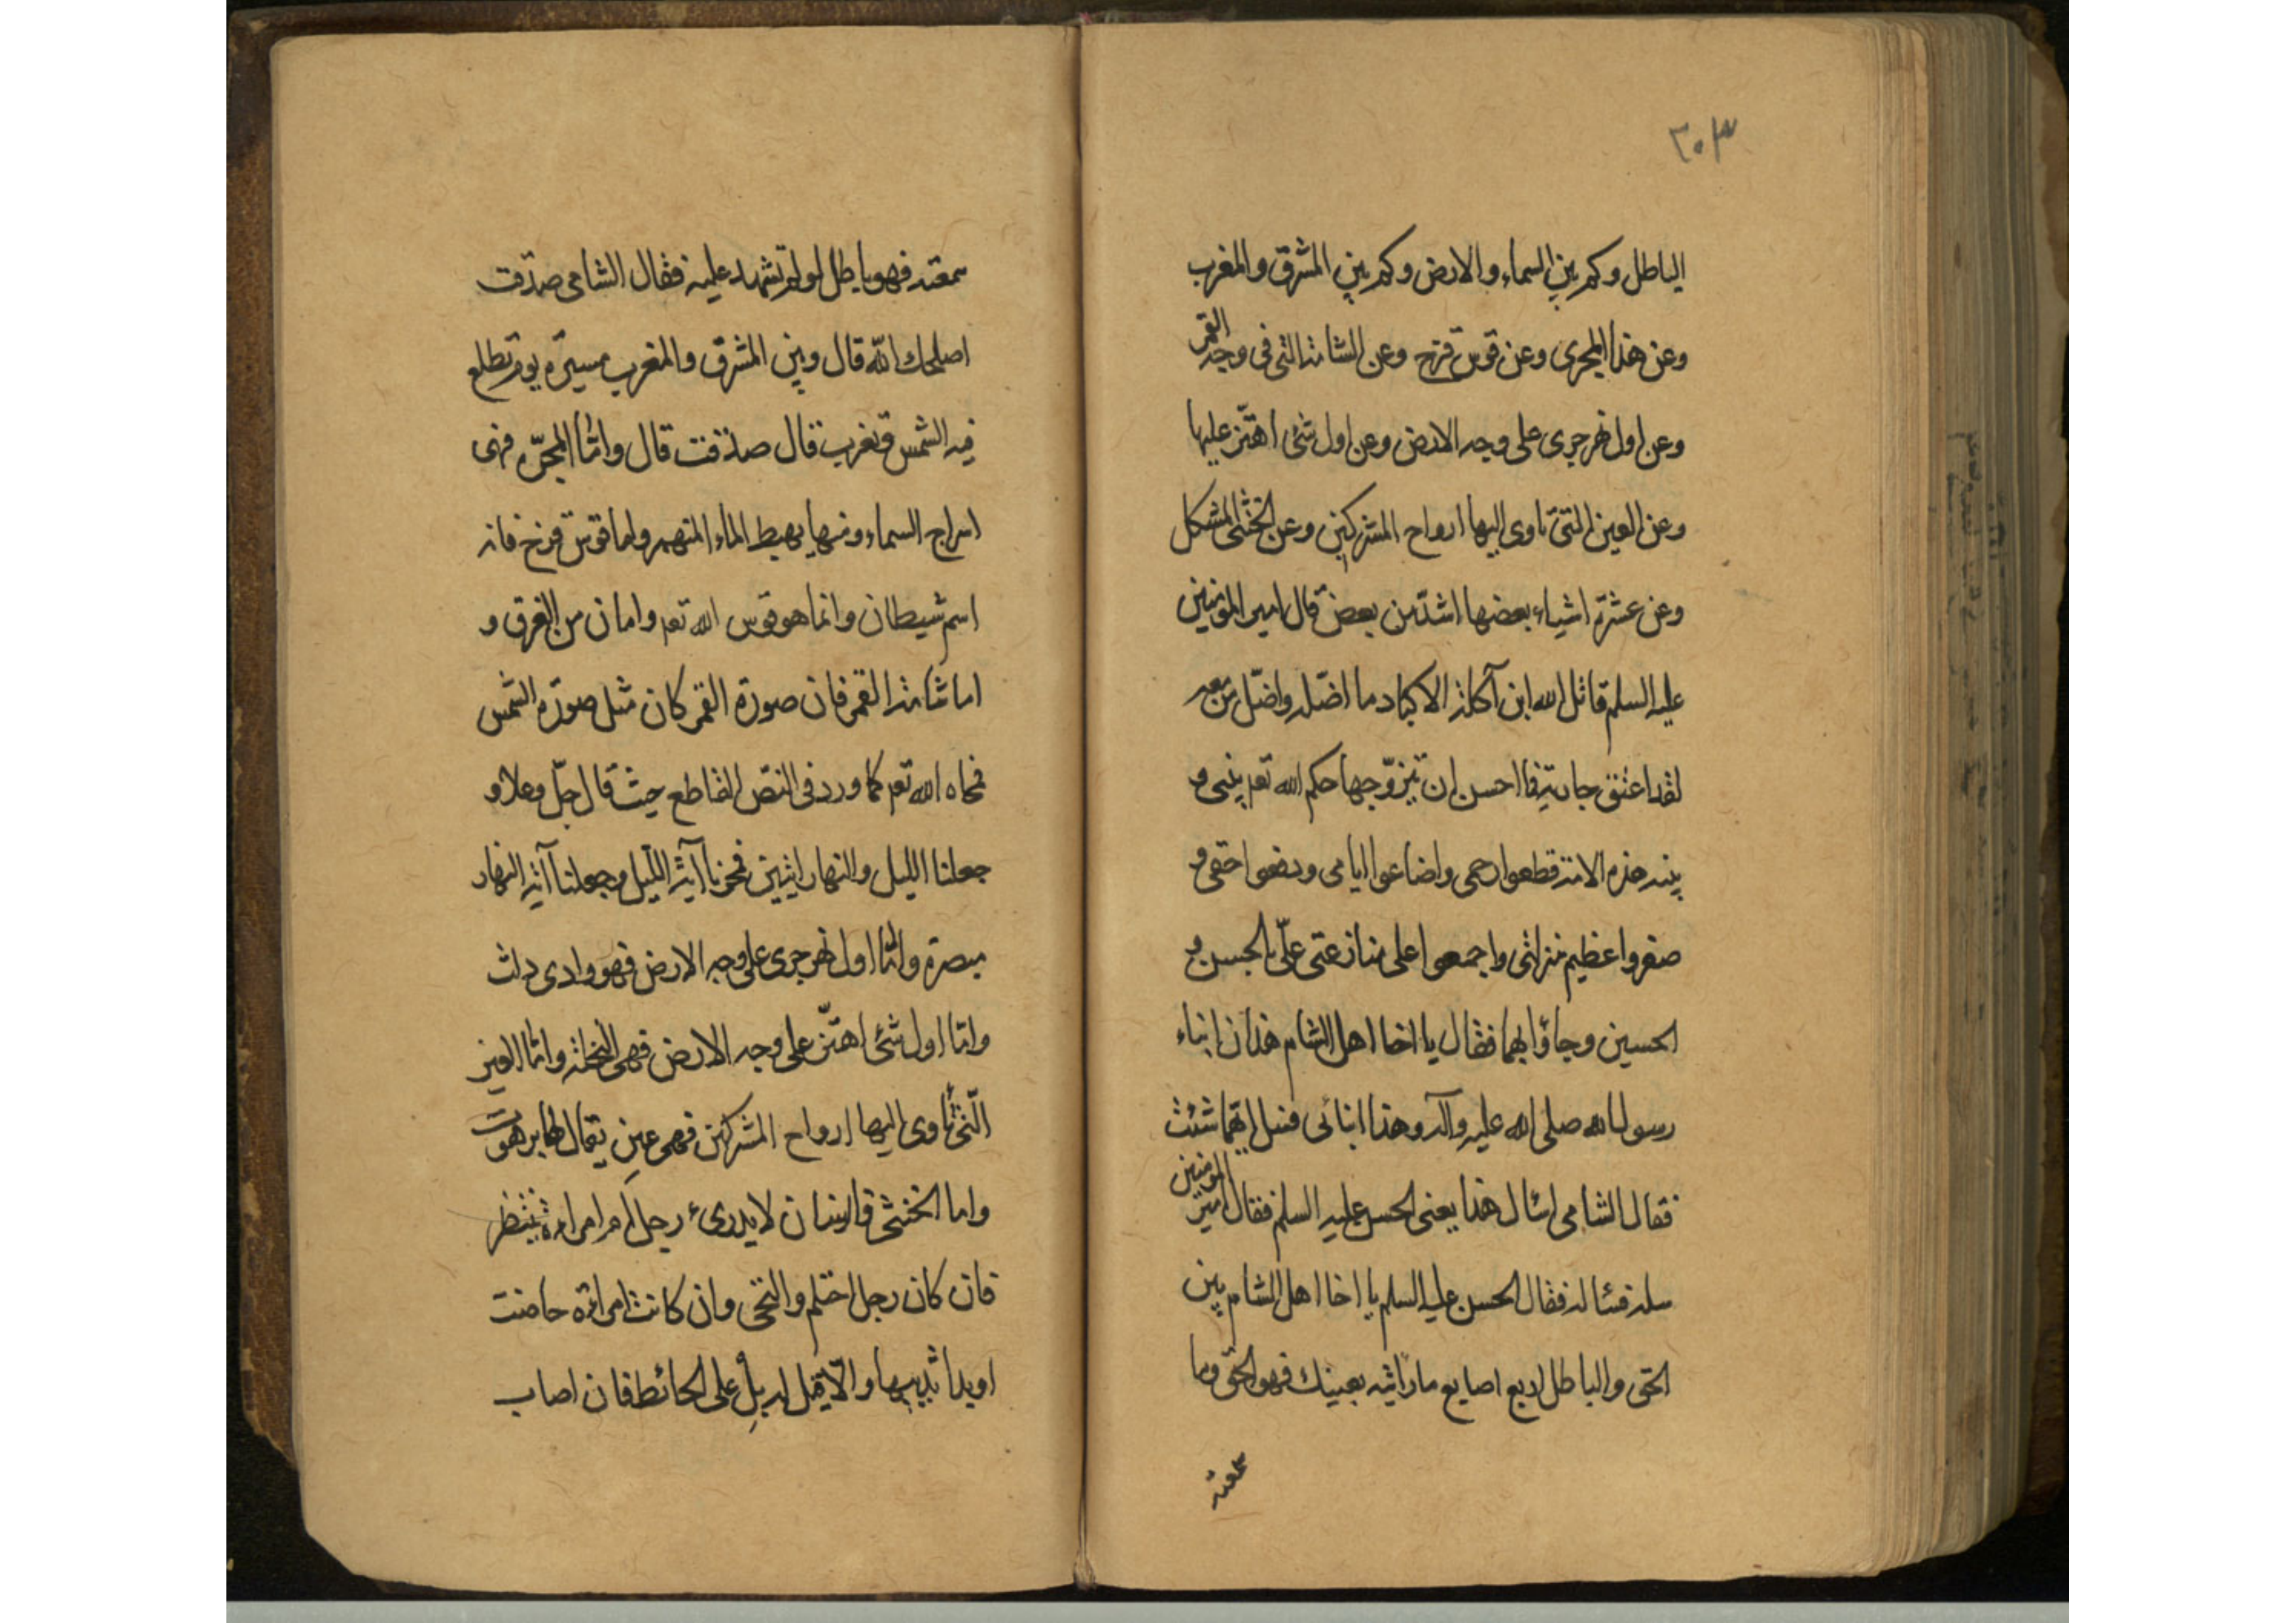 ٣٠٣
الباطل وكم بين السماء والارض وكم بين المشرق والمغرب
وعن هذا المجرى وعن قوس قزح وعن الشامة التى فى وجه القمر
وعن اول نهر جرى على وجه الارض وعن اول شئ اهتز عليها
وعن العين التى تاوى اليها ارواح المشركين وعن الخنثى المشكل
وعن عشرة اشياء بعضها اشد من بعض قال امير المؤمنين
عليه السلم قاتل الله ابن آكلة الاكباد ما اضله واضل من معه
لقد اعتق جارية فما احسن ان تيزوجها حكم الله تعم بينى و
بينه هذه الامة قطعوا رحمى واضاعوا ايامى ودفعوا حقى و
صغروا عظيم منزلتى واجمعوا على منازعتى علىّ بالحسن و
الحسين وجاؤا بهما فقال يا اخا اهل الشام هذان ابناء
رسول الله صلى الله عليه وآله وهذا ابنائى فسل ايهما شئت
فقال الشامى اسال هذا يعنى الحسن عليه السلم فقال امير المؤمنين
سله فسئاله فقال الحسن عليه السلم يا اخا اهل الشام بين
الحق والباطل اربع اصابع ما رايته بعينك فهو الحق وما
سمعته
سمعته فهو باطل لو لم تشهد عليه فقال الشامى صدقت
اصلحك الله قال وبين المشرق والمغرب مسيرة يوم تطلع
فيه الشمس وتغرب قال صدقت قال واما المجرة فهى
اسراج السماء ومنها يهبط الماء المنهمر واما قوس قزخ فانه
اسم شيطان وانما هو قوس الله تعم وامان من الغرق و
اما شامة القمر فان صورة القمر كان مثل صورة الشمس
فمحاه الله تعم كما ورد فى النص القاطع حيث قال جل وعلا و
جعلنا الليل والنهار ايتين فمحونا آية الليل وجعلنا آية النهار
مبصرة واما اول نهر جرى على وجه الارض فهو وادى دلث
واما اول شئ اهتز على وجه الارض فهى النخلة واما العين
التى تاوى اليها ارواح المشركين فهى عين يقال لها برهوت
واما الخنثى فانسان لا يدرى رجل ام امراة ينتظر
فان كان رجل احتلم والتحى وان كانت امرائة حاضت
او بدا ثدييها والا يقل له بل على الحائط فان اصاب